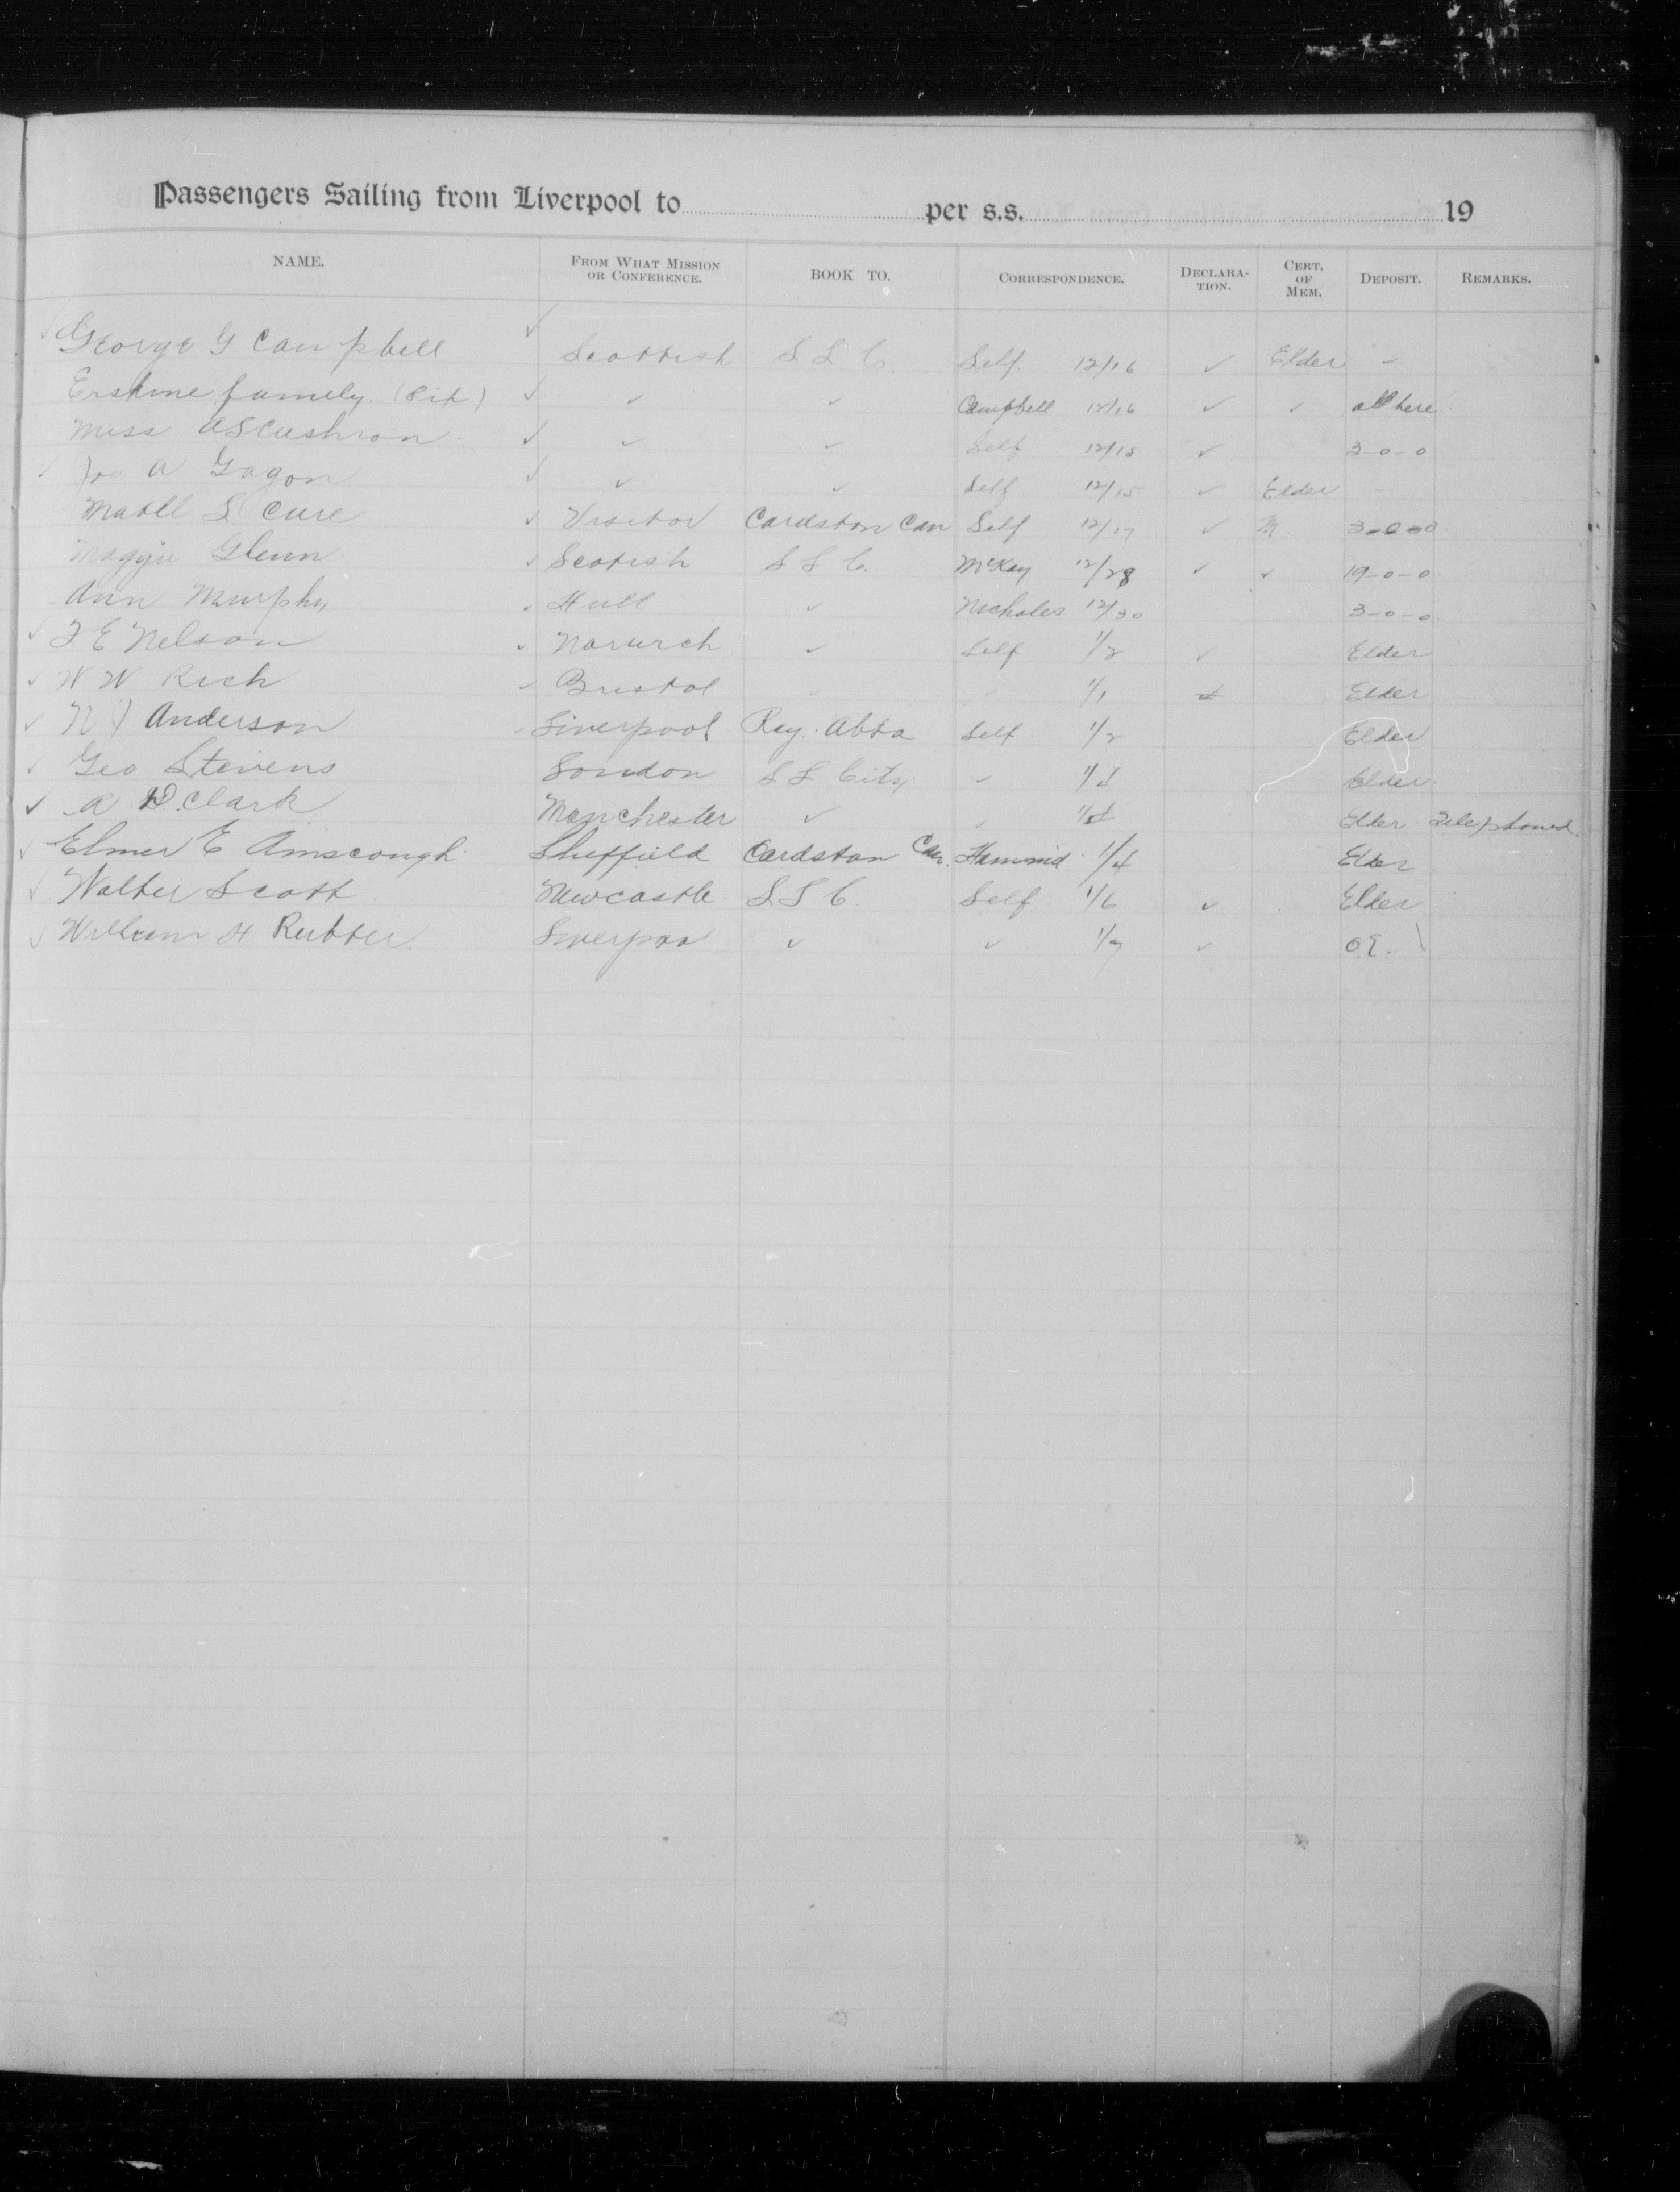 Passengers Sailing from Liverpool to per s.s. 19
NAME. FROM WHAT MISSION OR CONFERENCE. BOOK TO. CORRESPONDENCE. DECLARA-TION. CERT. OF MEM. DEPOSIT. REMARKS.
✓ George G Campbell ✓ Scottish S L C Self 12/16 ✓ Elder -
Erskine family. ✓ ✓ ✓ Campbell 12/16 ✓ ✓ all here
Miss ✓ ✓ ✓ Self 12/15 ✓ 3-0-0
✓ Jos A Gagon ✓ ✓ ✓ Self 12/15 ✓ Elder -
S Cure ✓ Visitor Cardston Can Self 12/17 ✓ M 3-0-0
Maggie Glenn ✓ Scotish S L C. McKay 12/28 ✓ ✓ 19-0-0
Ann Murphy ✓ Hull ✓ Nicholes 12/30 3-0-0
✓ F E Nelson ✓ Norwich ✓ Self 1/2 ✓ Elder
✓ W W Rich ✓ Bristol ✓ ✓ 1/1 Elder
✓ N J Anderson Liverpool Ray. Abta Self 1/2 Elder
✓ Geo Stevens London S L City ✓ Elder
✓ A D. Clark Manchester ✓ ✓ Elder Telephoned.
✓ Elmer E Ainscough Sheffield Cardston Can. Hammid 1/4 Elder
✓ Walter Scott Newcastle S L C Self 1/6 ✓ Elder
✓ William H Rutter Liverpoo ✓ ✓ 1/7 ✓ O.E.